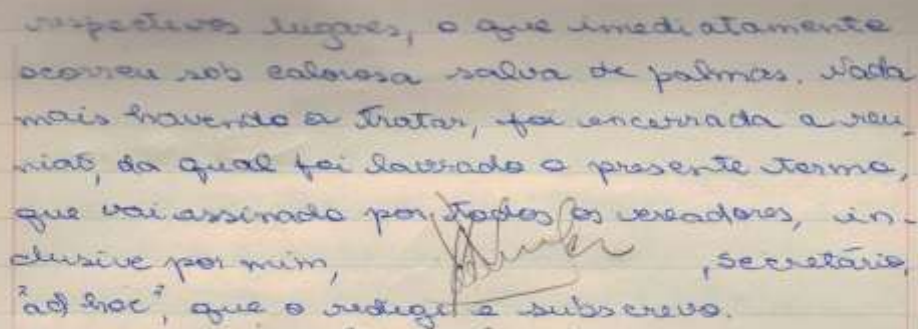 respectivos lugares, o que imediatamente
ocorreu sob calorosa salva de palmas. Nada
mais havendo a tratar, foi encerrada a reu-
nião, da qual foi lavrado o presente termo,
que vai assinado por todos os vereadores, in-
clusive por mim, , secretário,
"ad hoc", que o redigi e subscrevo.